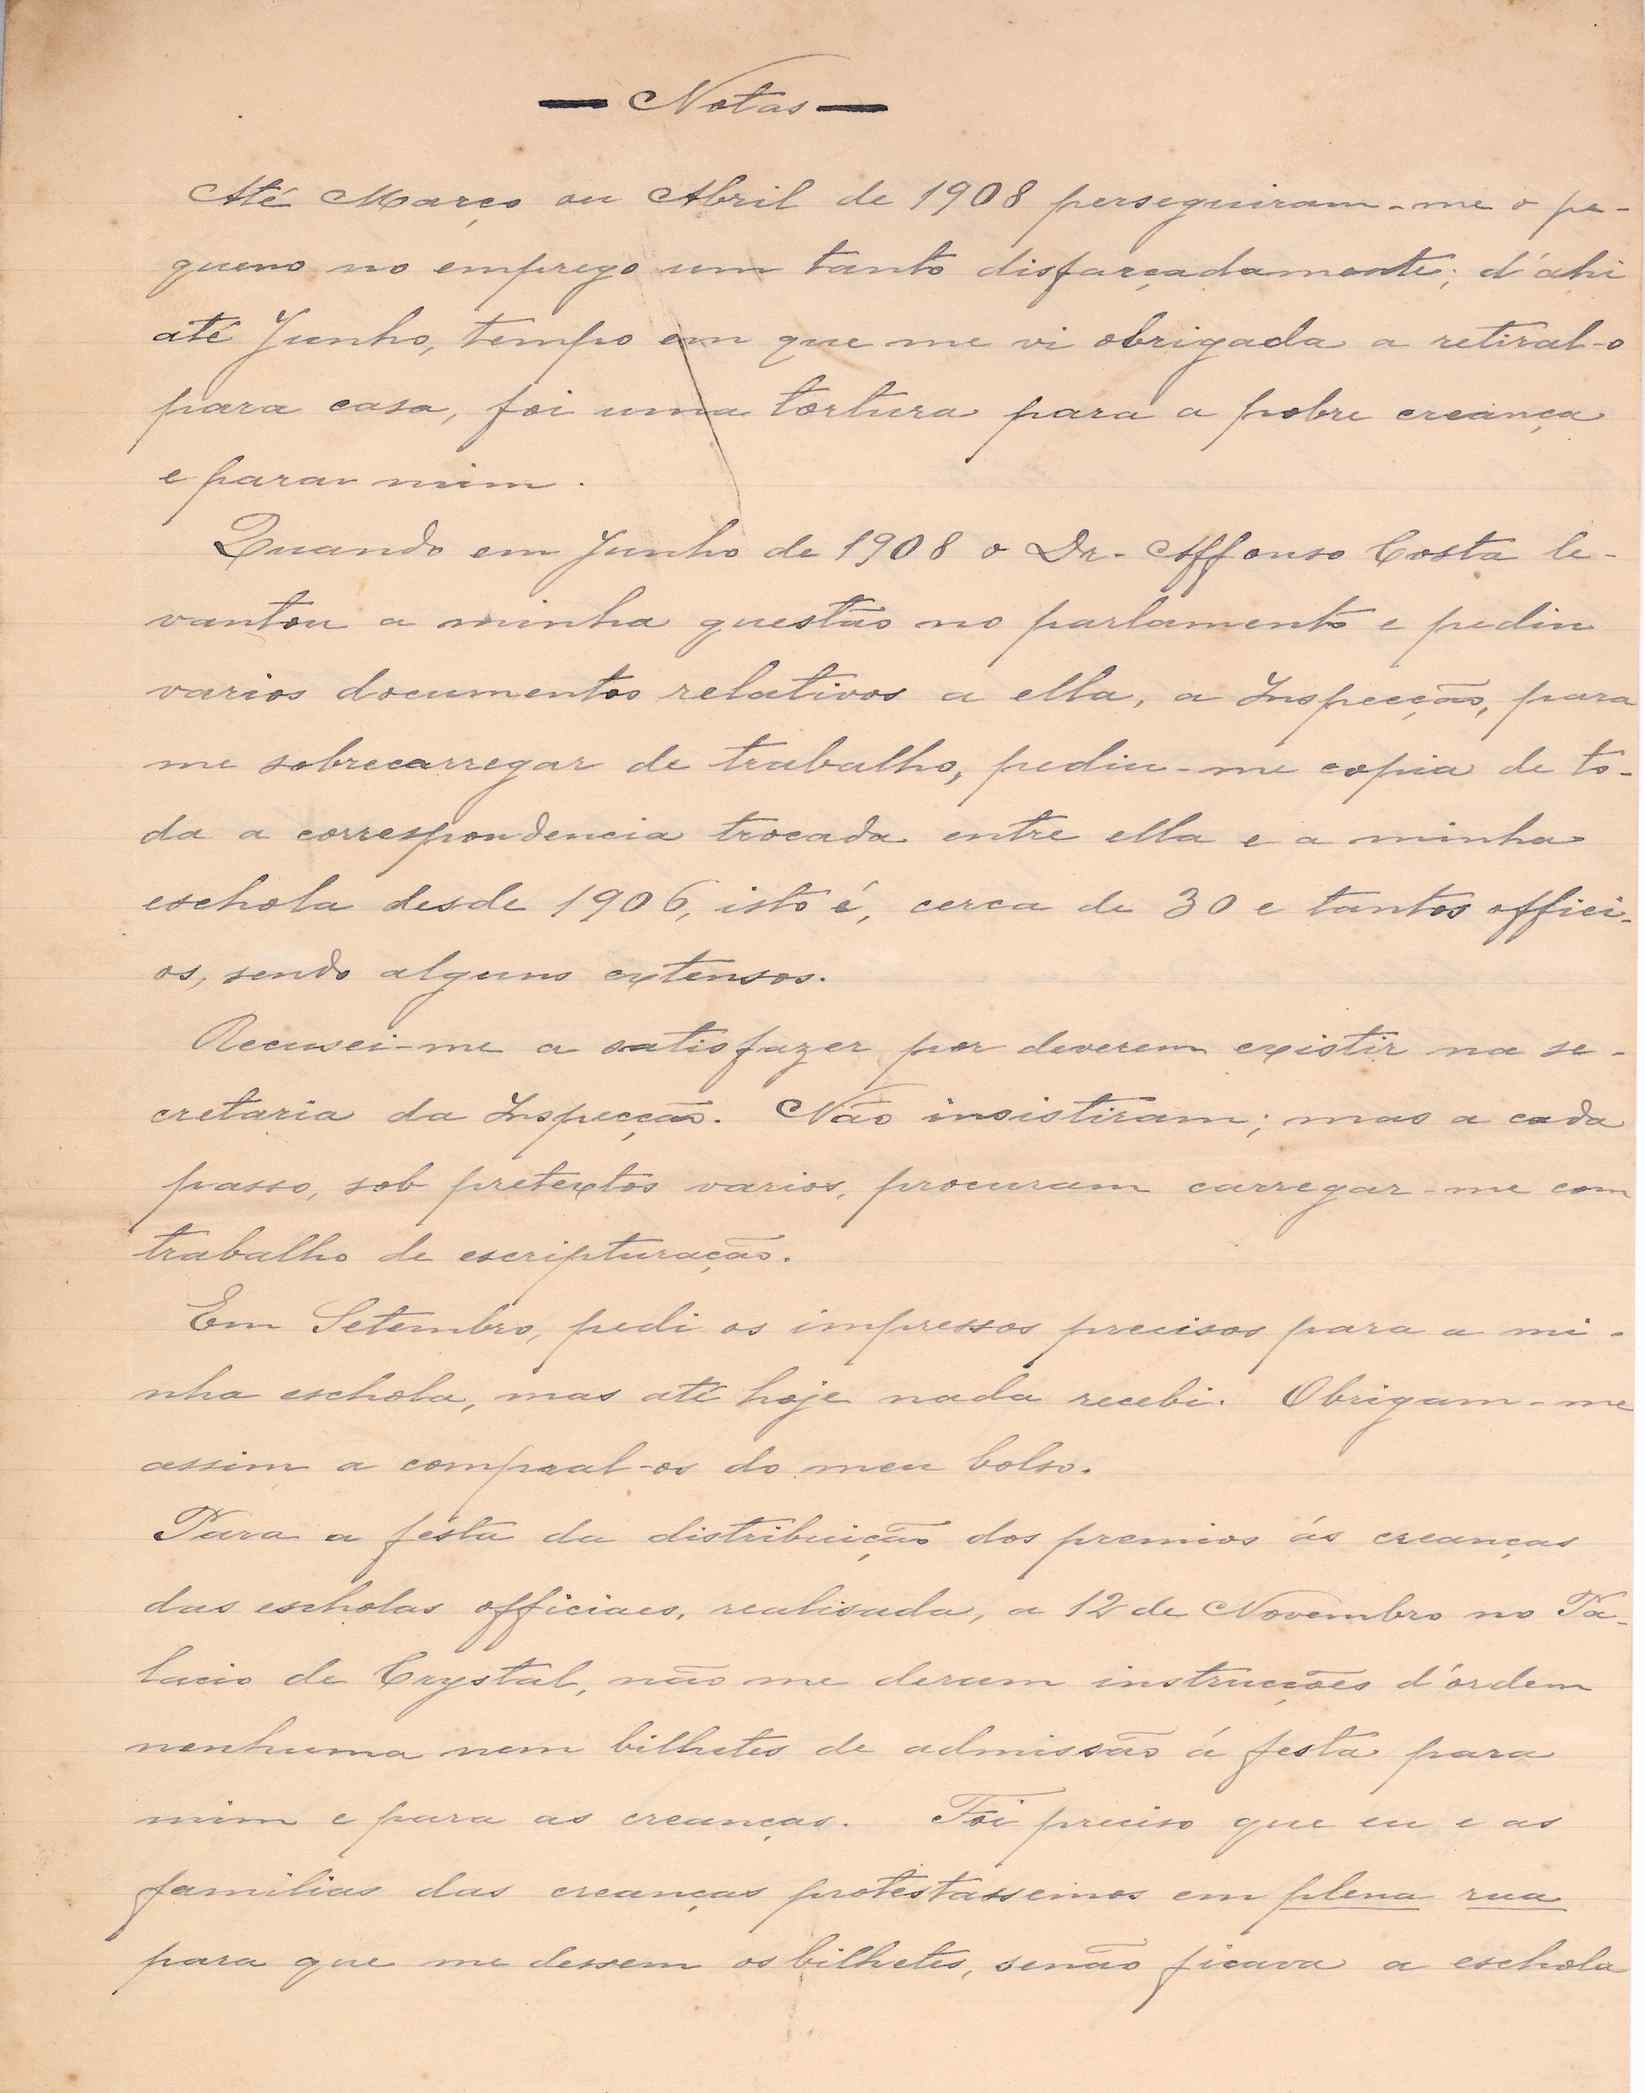 — Notas —
Até Março ou Abril de 1908 perseguiram-me o pe-
queno no emprego um tanto disfarçadamente; d'ahi
até Junho, tempo em que me vi obrigada a retiral-o
para casa, foi uma tortura para a pobre creança
e para mim.
Quando em Junho de 1908 o Dr. Affonso Costa le-
vantou a minha questão no parlamento e pediu
varios documentos relativos a ella, a Inspecção, para
me sobrecarregar de trabalho, pediu-me copia de to-
da a correspondencia trocada entre ella e a minha
eschola desde 1906, isto é, cerca de 30 e tantos offici-
os, sendo alguns extensos.
Recusei-me a satisfazer por deverem existir na se-
cretaria da Inspecção. Não insistiram; mas a cada
passo, sob pretextos varios, procuram carregar-me com
trabalho de escripturação.
Em Setembro, pedi os impressos precisos para a mi-
nha eschola, mas até hoje nada recebi. Obrigam-me
assim a compral-os do meu bolso.
Para a festa da distribuição dos premios ás creanças
das escholas officiaes, realisada, a 12 de Novembro no Pa-
lacio de Crystal, não me deram instrucções d'ordem
nenhuma nem bilhetes de admissão á festa para
mim e para as creanças. Foi preciso que eu e as
familias das creanças protestassemos em plena rua
para que me dessem os bilhetes, senão ficava a eschola